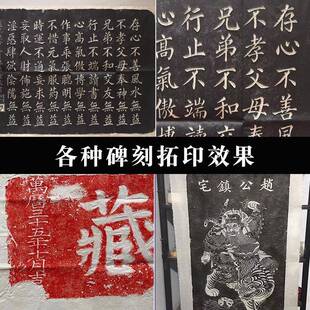 存心不善風水無益
不孝父母奉神無益
兄弟不和交友無益
行止不端讀書無益
心髙氣傲博學無益
作事乖張聰明無益
不惜元氣服藥無益
時運不通妄求無益
妄取人財佈施無益
淫惡肆欲陰騭無益
存心不善風
不孝父母奉
兄弟不和交
行止不端讀
心髙氣傲博
各种碑刻拓印效果
藏
萬曆三十五年十月吉
趙公鎮宅